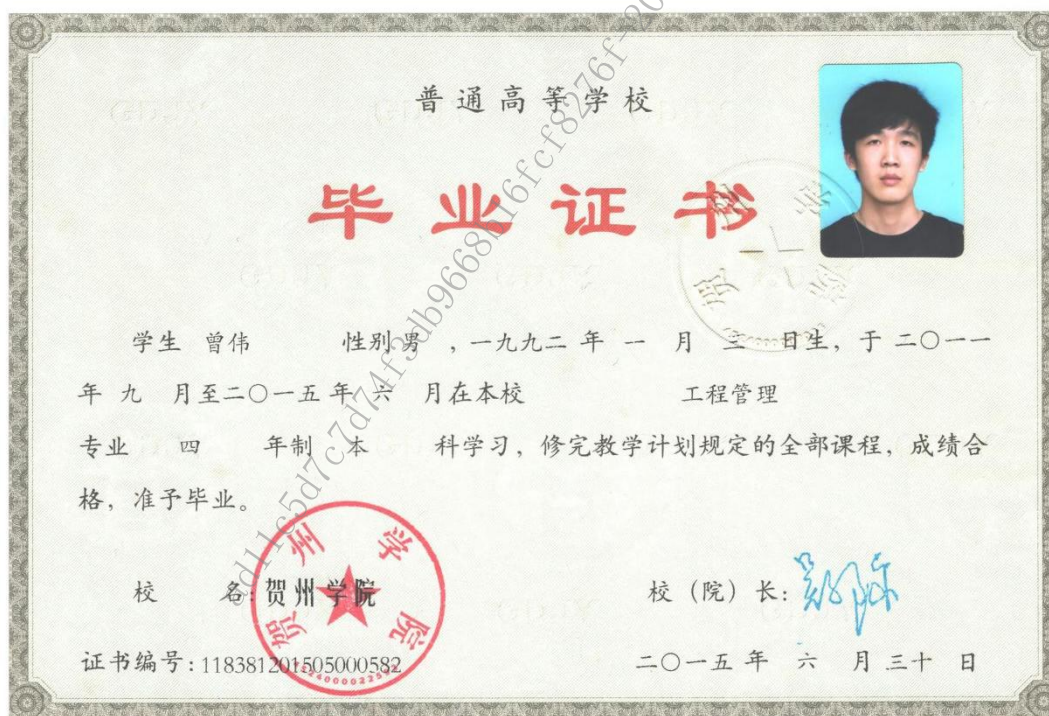 普通高等学校
毕业证书
学生 曾伟 性别 男 ，一九九二 年 一 月 三 日生，于 二〇一一
年 九 月至二〇一五年 六 月在本校 工程管理
专业 四 年制 本 科学习，修完教学计划规定的全部课程，成绩合
格，准予毕业。
校 名：贺州学院
校（院）长：
证书编号：118381201505000582
二〇一五 年 六 月 三十 日
贺州学院